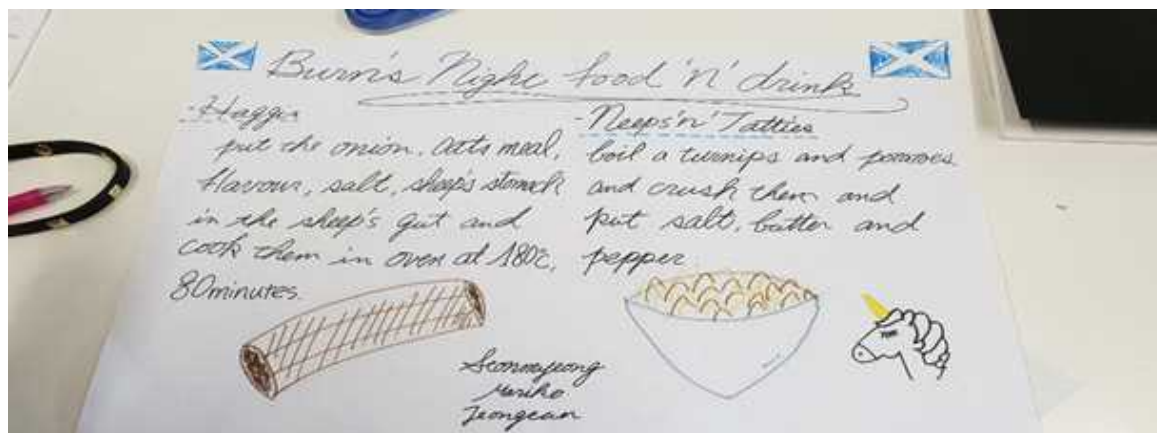 Burn's Night food 'n' drink
- Hagges
put the onion, oats meal,
flavour, salt, sheep's stomach
in the sheep's gut and
cook them in oven at 180℃,
80minutes.
- Neeps 'n' Tatties
boil a turnips and potatoes
and crush them and
put salt, butter and
pepper
Seonmyeong
Mariko
Jeongeun